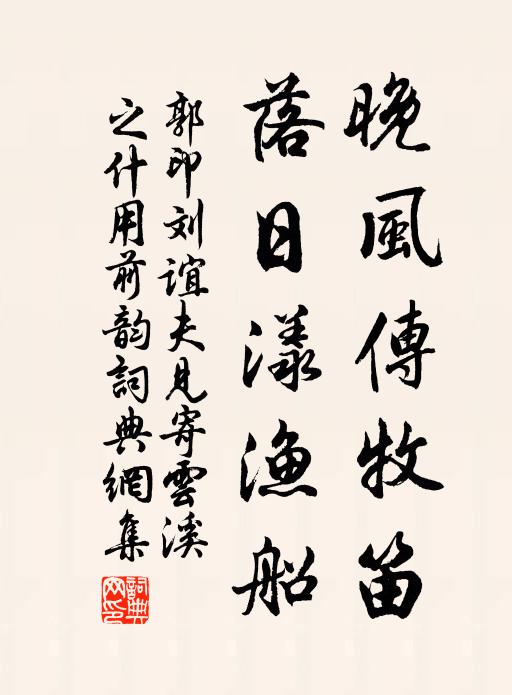 晚風傳牧笛
落日漾漁船
郭印刘谊夫見寄雲溪
之什用前韵詞典網集